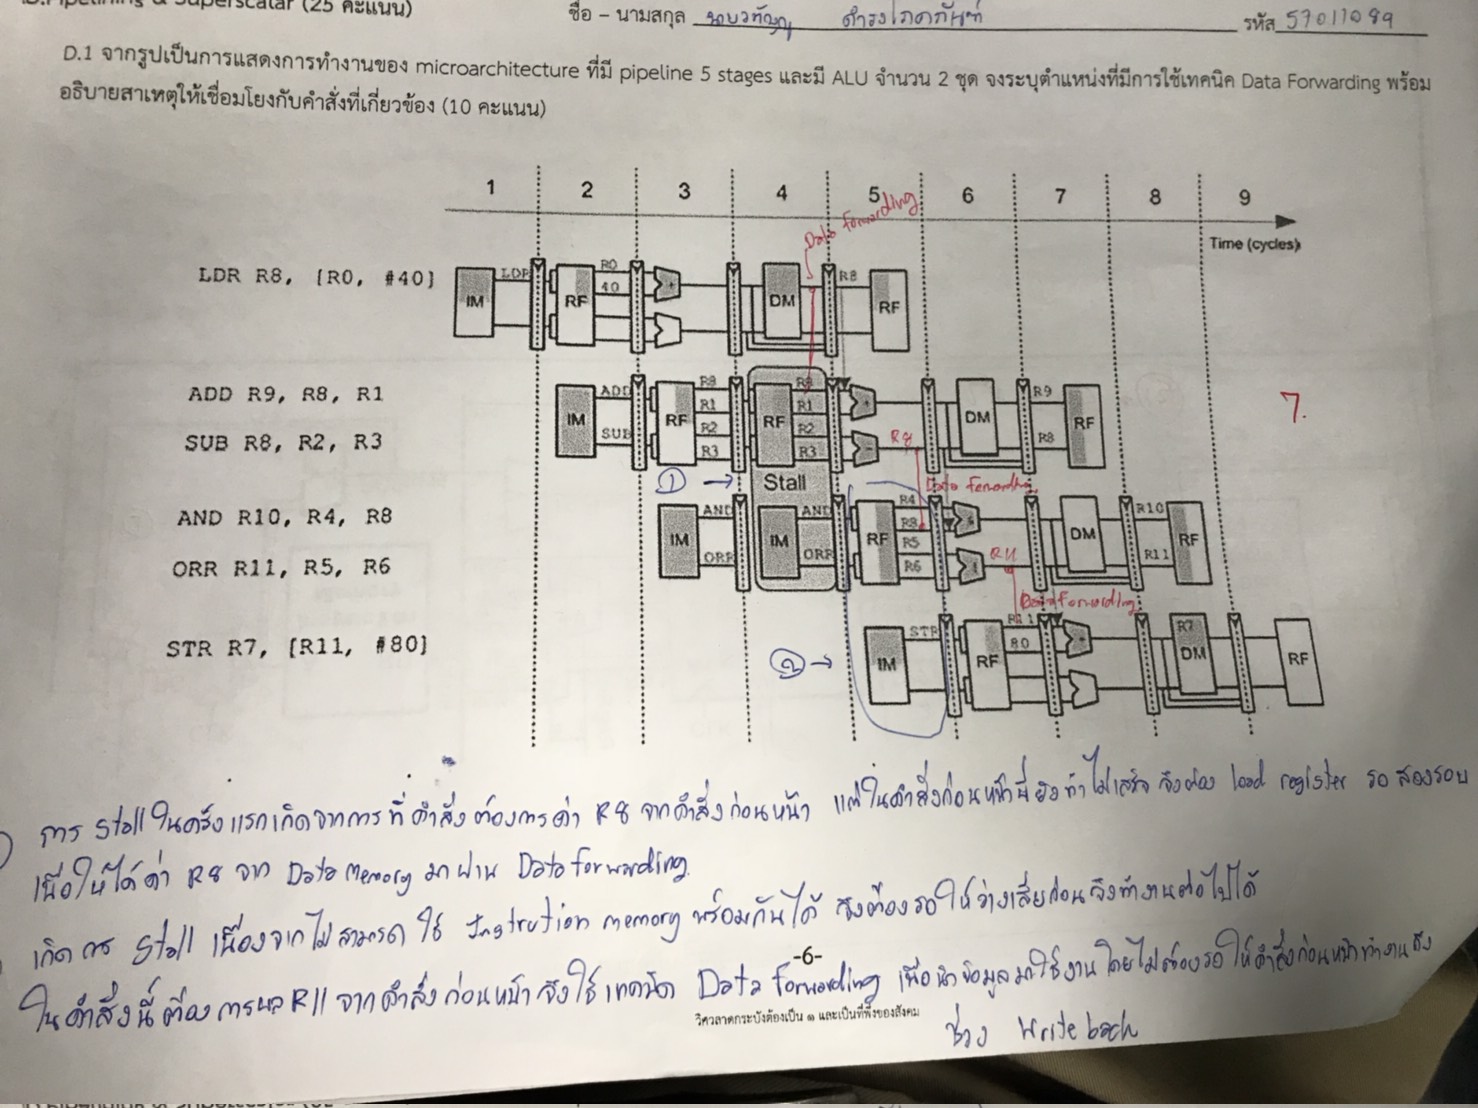 D.Pipelining & Superscalar (25 คะแนน)
ชื่อ – นามสกุล
รหัส 57011099
D.1 จากรูปเป็นการแสดงการทำงานของ microarchitecture ที่มี pipeline 5 stages และมี ALU จำนวน 2 ชุด จงระบุตำแหน่งที่มีการใช้เทคนิค Data Forwarding พร้อม
อธิบายสาเหตุให้เชื่อมโยงกับคำสั่งที่เกี่ยวข้อง (10 คะแนน)
1 2 3 4 5 6 7 8 9
Time (cycles)
Data forwarding
LDR R8, [R0, #40]
IM LDR RF R0 40 + DM R8 RF
ADD R9, R8, R1
SUB R8, R2, R3
IM ADD SUB RF R8 R1 R2 R3 RF R8 R1 R2 R3 + - R8 DM R9 R8 RF
7.
① → Stall
Data forwarding
AND R10, R4, R8
ORR R11, R5, R6
IM AND ORR IM AND ORR RF R4 R8 R5 R6 & | R11 DM R10 R11 RF
Data forwarding
STR R7, [R11, #80]
② → IM STR RF R11 80 + R7 DM RF
การ Stall ในครั้งแรกเกิดจากการที่คำสั่งต้องการค่า R8 จากคำสั่งก่อนหน้า แต่ในคำสั่งก่อนหน้านี้ยังทำไม่เสร็จ จึงต้อง load register รอสองรอบ
เพื่อให้ได้ค่า R8 จาก Data Memory มาผ่าน Data forwarding
เกิดการ Stall เนื่องจากไม่สามารถใช้ Instrution memory พร้อมกันได้ จึงต้องรอให้ว่างเสียก่อนจึงทำงานต่อไปได้
ในคำสั่งนี้ต้องการผล R11 จากคำสั่งก่อนหน้าจึงใช้เทคนิค Data forwarding เพื่อนำข้อมูลมาใช้งานโดยไม่ต้องรอให้คำสั่งก่อนหน้าทำงานถึง
ช่วง Write back
-6-
วิศวลาดกระบังต้องเป็น ๑ และเป็นที่พึ่งของสังคม